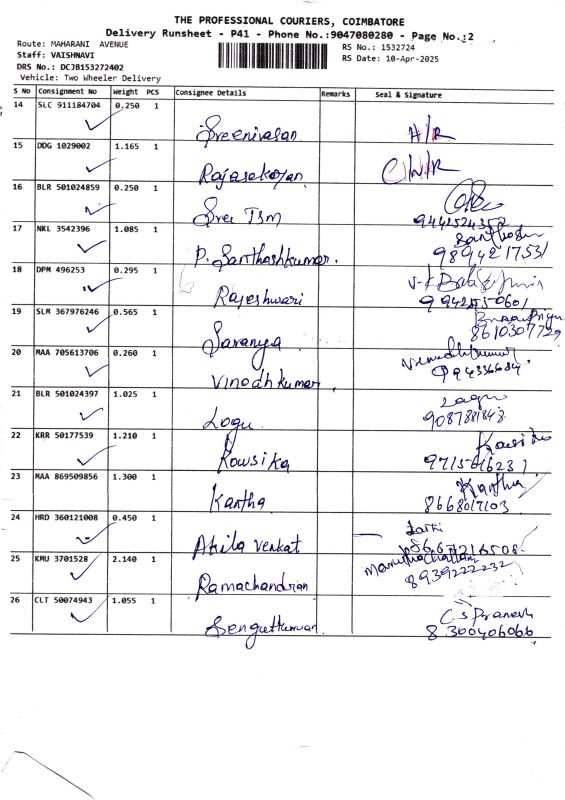 THE PROFESSIONAL COURIERS, COIMBATORE
Delivery Runsheet - P41 - Phone No.:9047080280 - Page No.:2
Route: MAHARANI AVENUE
RS No.: 1532724
Staff: VAISHNAVI
RS Date: 10-Apr-2025
DRS No.: DCJB153272402
Vehicle: Two Wheeler Delivery
S No Consignment No Weight PCS Consignee Details Remarks Seal & Signature
14 SLC 911184704 0.250 1
Sreenivasan H/R
15 DDG 1029002 1.165 1
Rajasekaran
16 BLR 501024859 0.250 1
Sree Tsm
9442524352
17 NKL 3542396 1.085 1
Santhosh
P. Santhoshkumar. 9894217531
18 DPM 496253 0.295 1
Rajeshwari
19 SLM 367976246 0.565 1
8610307729
Saranya
20 MAA 705613706 0.260 1
Vinodhkumar
Vinodhkumar
21 BLR 501024397 1.025 1
Logu
Logu.
22 KRR 50177539 1.210 1
Kowsika
23 MAA 869509856 1.300 1
Kantha
Kantha 8668017103
24 HRD 360121008 0.450 1
Akila Venkat
25 KMU 3701528 2.140 1
8939222232
Ramachandran
26 CLT 50074943 1.055 1
C S Pranesh
Senguttuvan 8300406066